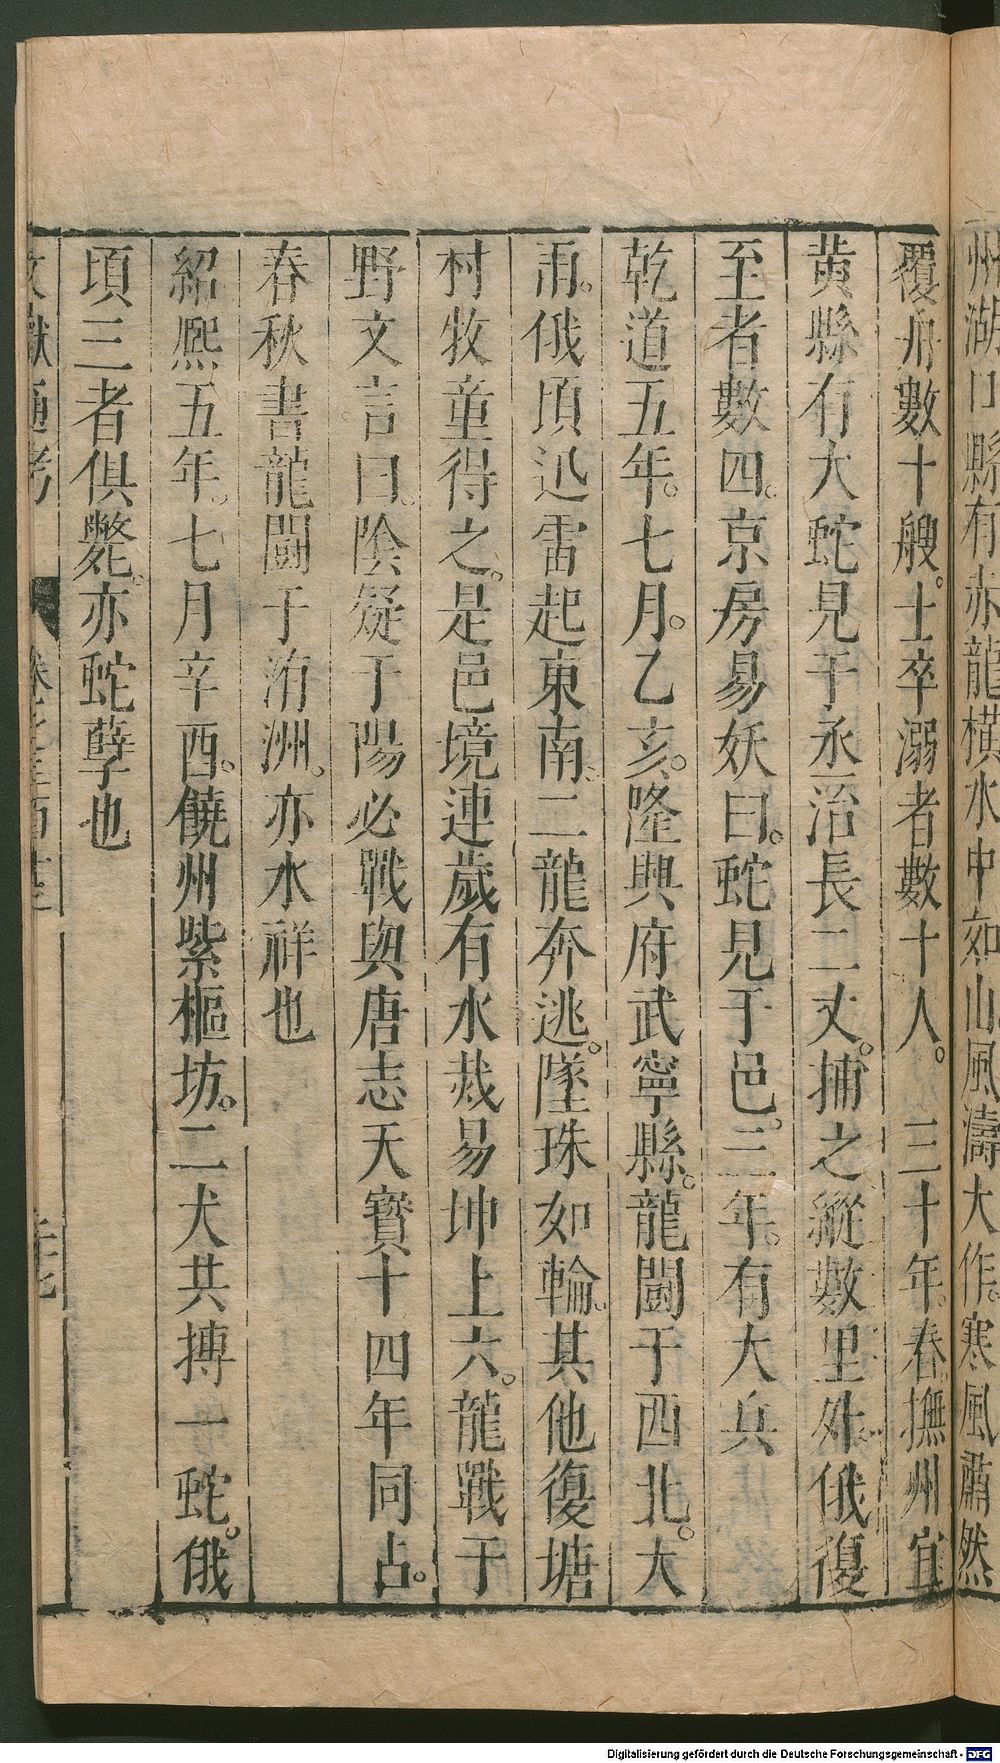 州湖口縣有赤龍橫水中如山風濤大作寒風肅然
覆舟數十艘。士卒溺者數十人。三十年。春。撫州宜
黃縣有大蛇見于丞治長二丈。捕之縱數里外。俄復
至者數四。京房易妖曰。蛇見于邑。三年。有大兵
乾道五年。七月。乙亥。隆興府武寧縣。龍鬭于西北。大
雨。俄頃迅雷起東南。二龍奔逃。墜珠如輪。其他復塘
村牧童得之。是邑境連歲有水烖易坤上六。龍戰于
野文言曰。陰凝于陽必戰與唐志天寶十四年同占。
春秋書龍鬭于洧洲。亦水祥也
紹熙五年。七月辛酉。饒州紫樞坊。二犬共搏一蛇。俄
頃三者俱斃。亦蛇孽也
文獻通考
Digitalisierung gefördert durch die Deutsche Forschungsgemeinschaft - DFG